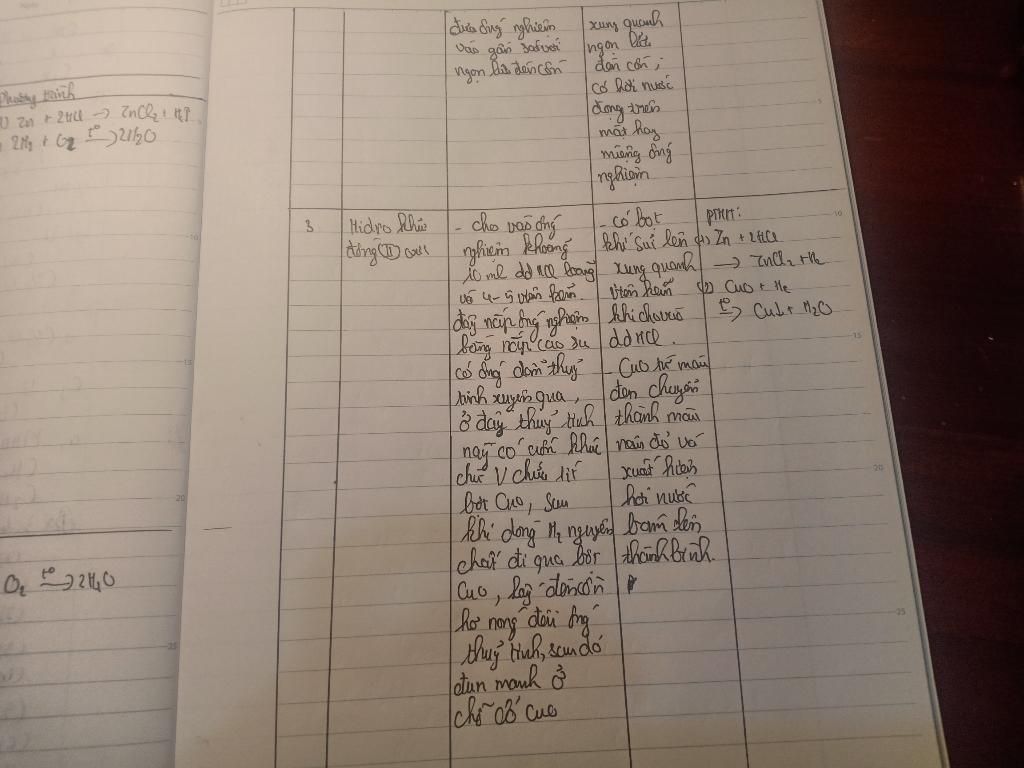 Phương trình
1) Zn + 2HCl → ZnCl₂ + H₂↑
2H₂ + O₂ t° → 2H₂O
O₂ t° → 2H₂O
đưa ống nghiệm
vào gần sát với
ngọn lửa đèn cồn
xung quanh
ngọn lửa
đèn cồn,
có hơi nước
đọng trên
mặt hay
miệng ống
nghiệm
3
Hidro khử
đồng (II) oxit
- cho vào ống
nghiệm khoảng
10 ml dd HCl loãng
và 4-5 viên kẽm.
đậy nắp ống nghiệm
bằng nắp cao su
có ống dẫn thuỷ
tinh xuyên qua,
ở đây thuỷ tinh
này có uốn khúc
chữ V chứa ít
bột CuO, sau
khi dòng H₂ nguyên
chất đi qua bột
CuO, lấy đèn cồn
hơ nóng đều ống
thuỷ tinh, sau đó
đun mạnh ở
chỗ có CuO
- có bọt
khí sủi lên
xung quanh
viên kẽm
khi cho vào
dd HCl.
- CuO từ màu
đen chuyển
thành màu
nâu đỏ và
xuất hiện
hơi nước
bám lên
thành bình.
PTHH:
(1) Zn + 2HCl
→ ZnCl₂ + H₂
(2) CuO + H₂
t° → Cu↓ + H₂O